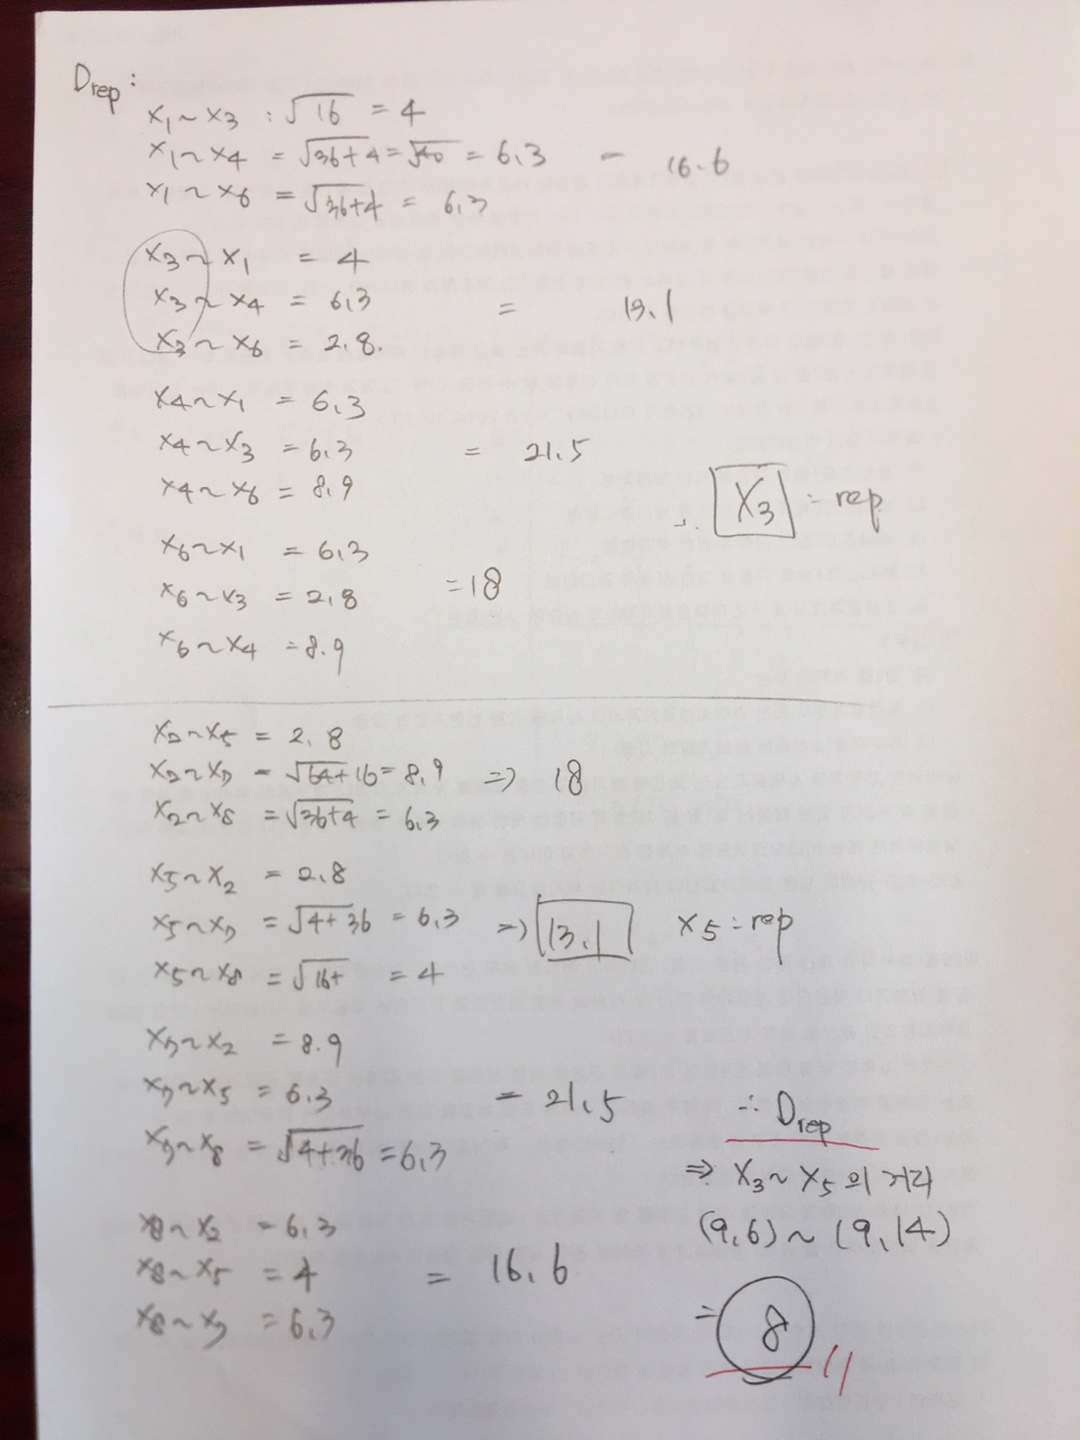 Drep :
x1 ~ x3 : √16 = 4
x1 ~ x4 = √36+4 = √40 = 6.3 - 16.6
x1 ~ x6 = √36+4 = 6.3
x3 ~ x1 = 4
x3 ~ x4 = 6.3 = 13.1
x3 ~ x6 = 2.8.
x4 ~ x1 = 6.3
x4 ~ x3 = 6.3 = 21.5
x4 ~ x6 = 8.9
∴ x3 = rep
x6 ~ x1 = 6.3
x6 ~ x3 = 2.8 = 18
x6 ~ x4 = 8.9
x2 ~ x5 = 2.8
x2 ~ x7 = √64+16 = 8.9 => 18
x2 ~ x8 = √36+4 = 6.3
x5 ~ x2 = 2.8
x5 ~ x7 = √4+36 = 6.3 => 13.1 x5 = rep
x5 ~ x8 = √16+ = 4
x7 ~ x2 = 8.9
x7 ~ x5 = 6.3 = 21.5
x7 ~ x8 = √4+36 = 6.3
x8 ~ x2 = 6.3
x8 ~ x5 = 4 = 16.6
x8 ~ x7 = 6.3
∴ Drep
=> x3 ~ x5 의 거리
(9,6) ~ (9,14)
= 8